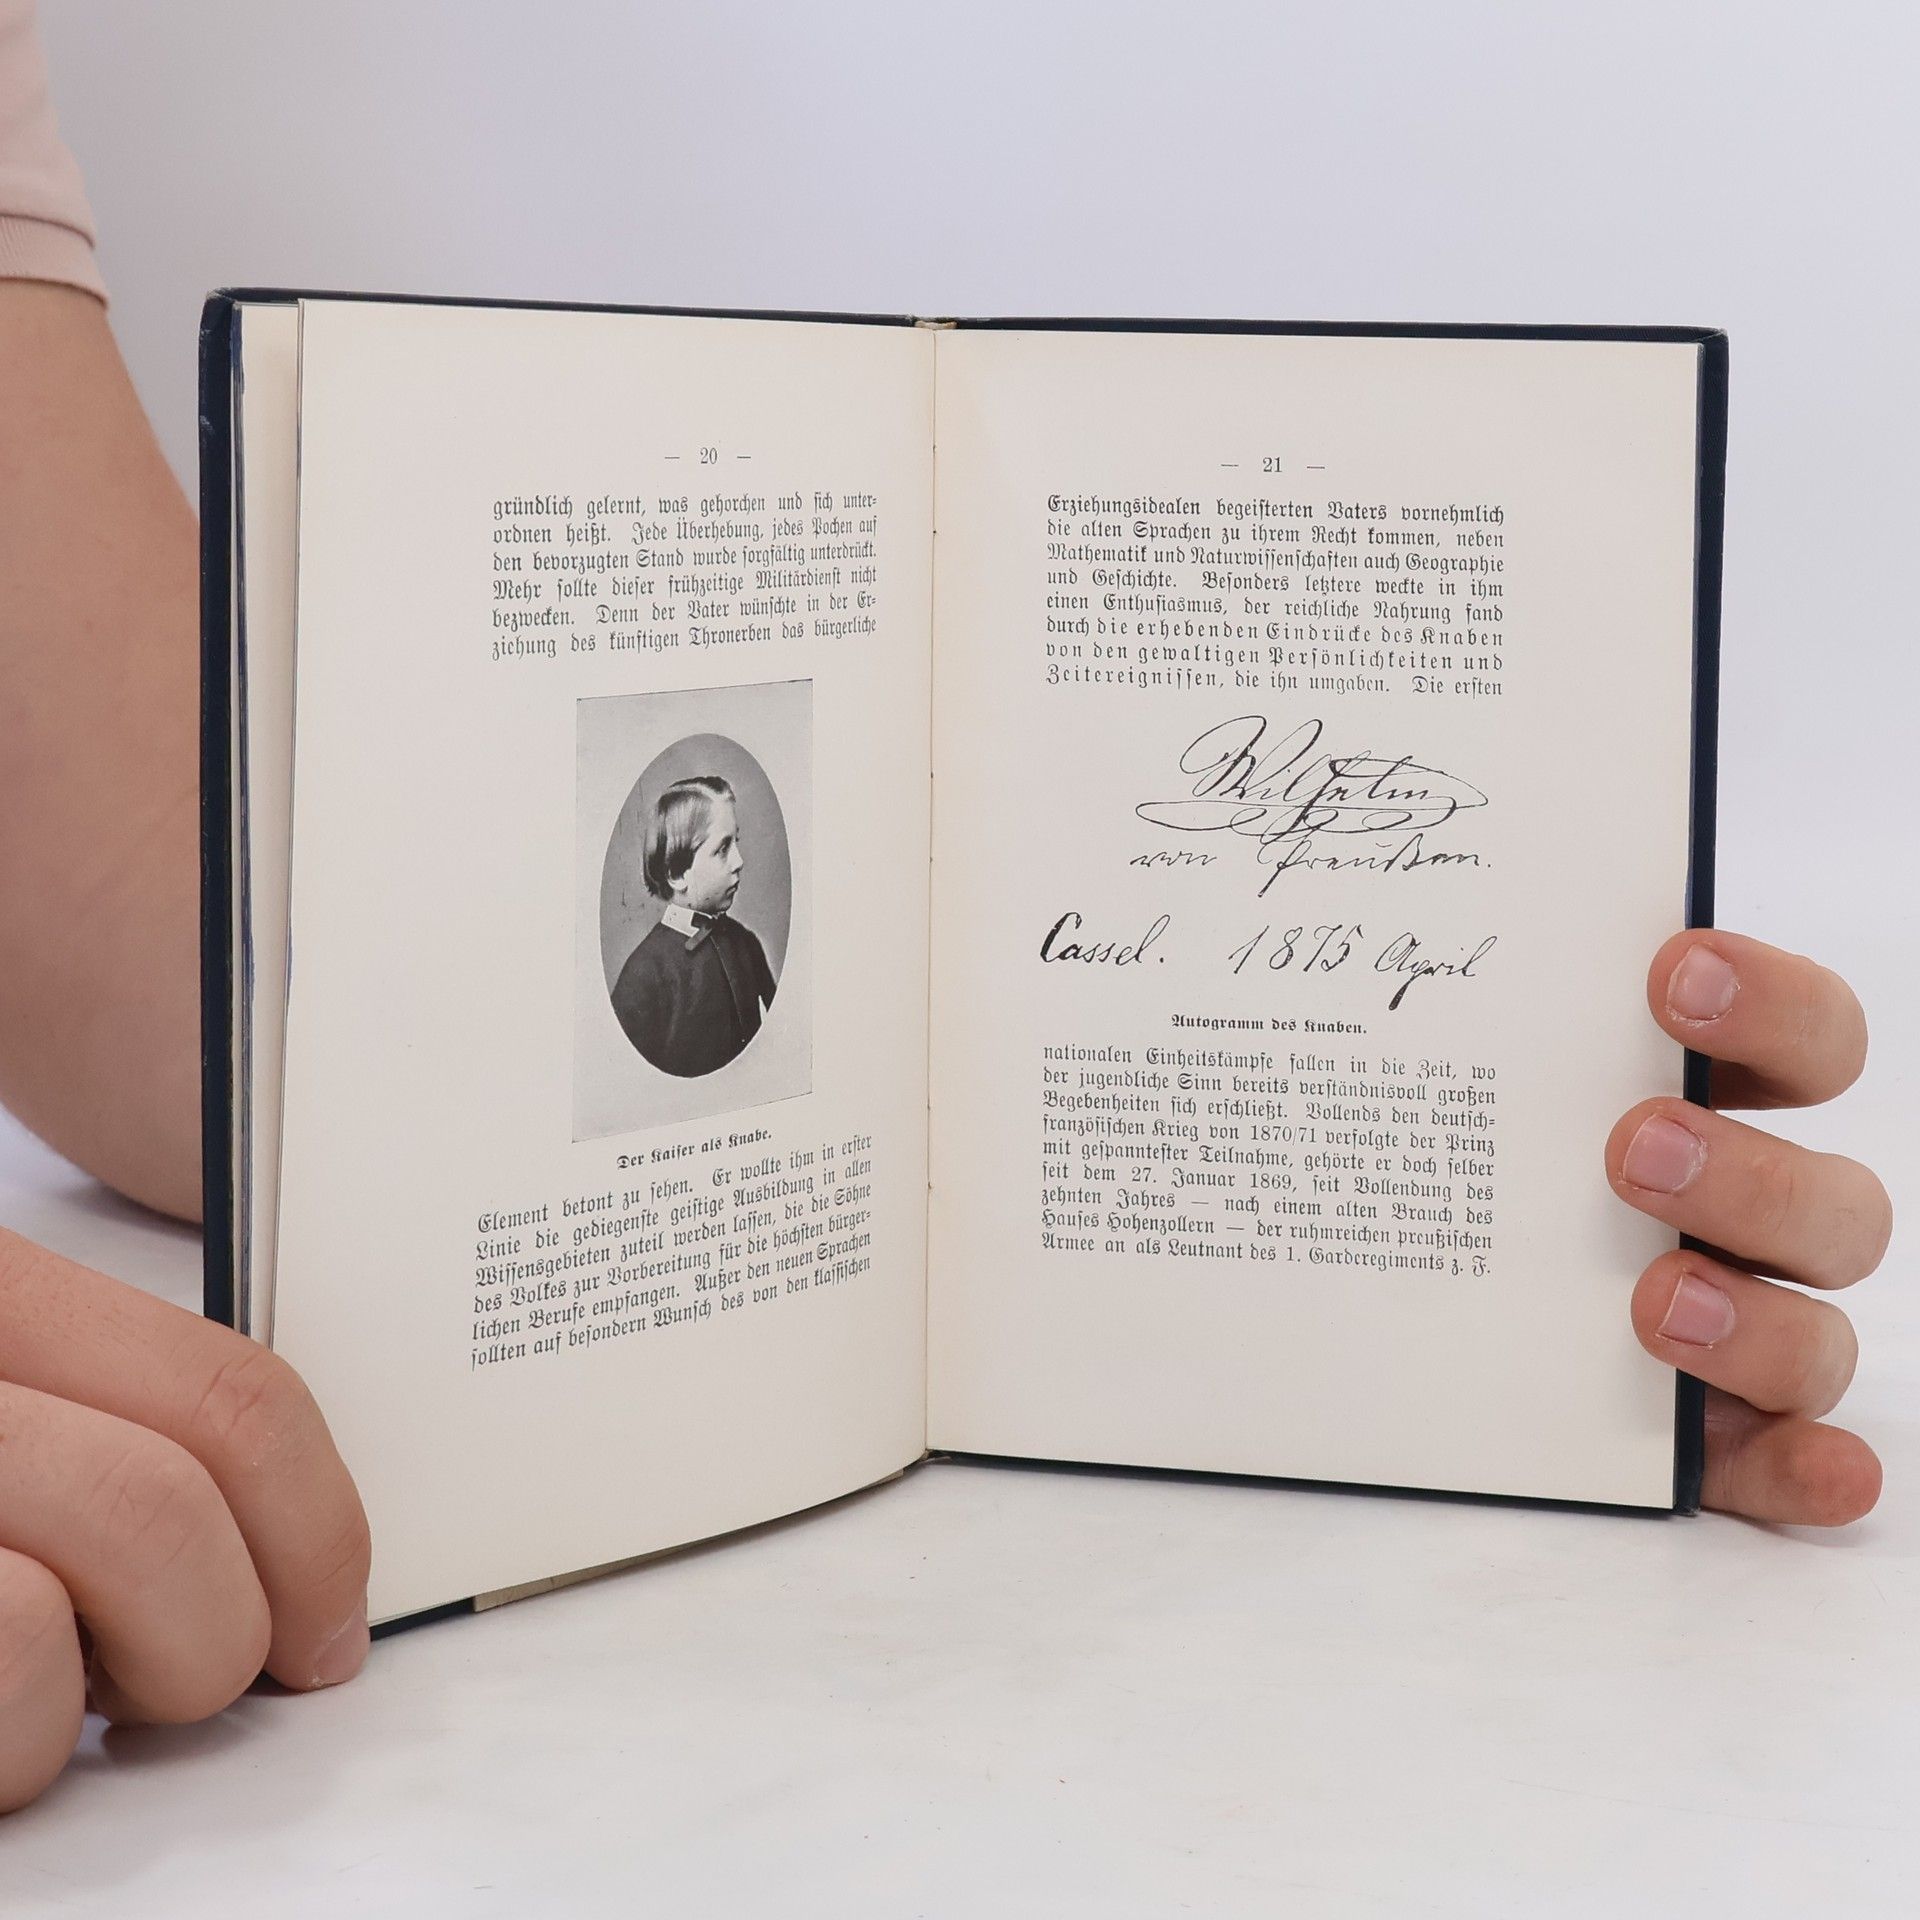 — 20 —
gründlich gelernt, was gehorchen und sich unter-
ordnen heißt. Jede Überhebung, jedes Pochen auf
den bevorzugten Stand wurde sorgfältig unterdrückt.
Mehr sollte dieser frühzeitige Militärdienst nicht
bezwecken. Denn der Vater wünschte in der Er-
ziehung des künftigen Thronerben das bürgerliche
Der Kaiser als Knabe.
Element betont zu sehen. Er wollte ihm in erster
Linie die gediegenste geistige Ausbildung in allen
Wissensgebieten zuteil werden lassen, die die Söhne
des Volkes zur Vorbereitung für die höchsten bürger-
lichen Berufe empfangen. Außer den neuen Sprachen
sollten auf besondern Wunsch des von den klassischen
— 21 —
Erziehungsidealen begeisterten Vaters vornehmlich
die alten Sprachen zu ihrem Recht kommen, neben
Mathematik und Naturwissenschaften auch Geographie
und Geschichte. Besonders letztere weckte in ihm
einen Enthusiasmus, der reichliche Nahrung fand
durch die erhebenden Eindrücke des Knaben
von den gewaltigen Persönlichkeiten und
Zeitereignissen, die ihn umgaben. Die ersten
Wilhelm
von Preußen.
Cassel. 1875 April
Autogramm des Knaben.
nationalen Einheitskämpfe fallen in die Zeit, wo
der jugendliche Sinn bereits verständnisvoll großen
Begebenheiten sich erschließt. Vollends den deutsch-
französischen Krieg von 1870/71 verfolgte der Prinz
mit gespanntester Teilnahme, gehörte er doch selber
seit dem 27. Januar 1869, seit Vollendung des
zehnten Jahres — nach einem alten Brauch des
Hauses Hohenzollern — der ruhmreichen preußischen
Armee an als Leutnant des 1. Garderegiments z. F.